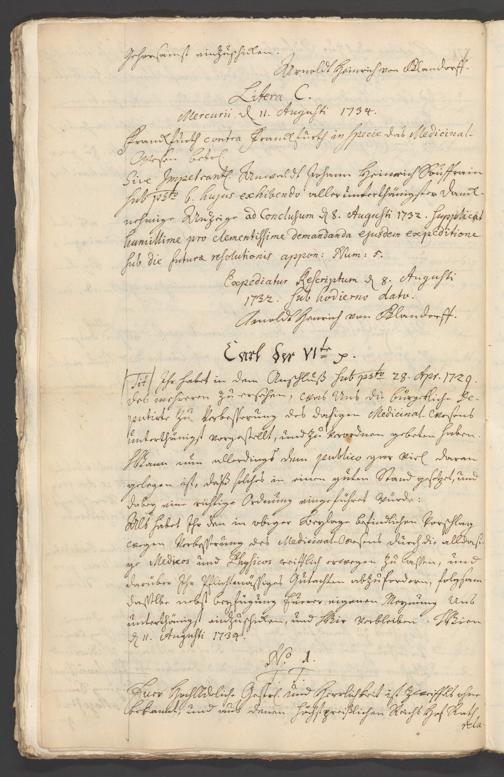 gehorsamst einzuschicken.
Arnoldt Heinrich von Glandorff.
Litera C.
Mercurii d 11. Augusti 1734.
Franckfurth contra Franckfurth in specie das Medicinal-
Wesen betrl.
Sive Impetrantl. Anwaldt Johann Heinrich
sub psto 6. hujus exhibendo allerunterthänigste Danck-
nehmige Anzeige ad Conclusum d 8. Augusti 1732. supplicat
humillime pro clementissime demandanda ejusdem expeditione
sub die futurae resolutionis appon: Num: 5.
Expediatur Rescriptum d 8. Augusti
1732. sub hodierno dato.
Arnoldt Henrich von Glandorff.
Carl der VIte p.
Tit Ihr habet in dem Anschluß sub psto 28. Apr. 1729.
des mehreren zu ersehen, was Uns die bürgerliche De-
putirte zu Verbesserung des dasigen Medicinal-Wesens
unterthänigst vorgestellt, und zu verordnen gebeten haben.
Wann nun allerdings dem publico gar viel daran
gelegen ist, daß solches in einen guten Stand gesetzt, und
dabey eine richtige Ordnung eingeführet würde:
Als habet Ihr den in obiger Beylage befindlichen Vorschlag
wegen Verbesserung des Medicinal-Wesens durch die alldasi-
ge Medicos und Physicos reifflich erwegen zu lassen, und
darüber Ihr Pflichtmässiges Gutachten abzufordern, folgsam
dasselbe nebst Beyfügung Eurer eigenen Meynung Uns
unterthänigst einzuschicken, und Wir verbleiben Wien
d 11. Augusti 1734.
No. 1.
Euer Hochlöbliche Gestrl. und Herrlichkeit ist zweifels ohne
bekandt, und aus denen Höchstpreißlichen Reichs Hof Rath